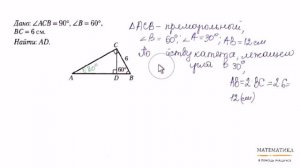 Дано: ∠ACB = 90°, ∠B = 60°,
BC = 6 см.
Найти: AD.
C
6
30°
60°
A
D
B
△ACB – прямоугольный,
∠B = 60°; ∠A = 30°; AB = 12 см
По св-ву катета, лежащей
угла в 30°,
AB = 2 BC = 2·6 =
12 (см)
МАТЕМАТИКА